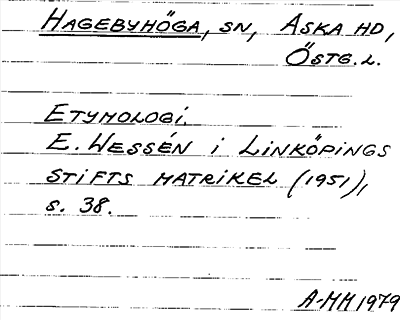 HAGEBYHÖGA, SN, ASKA HD,
ÖSTG.L.
ETYMOLOGI.
E. WESSÉN I LINKÖPINGS
STIFTS MATRIKEL (1951),
S. 38.
A-MH 1979